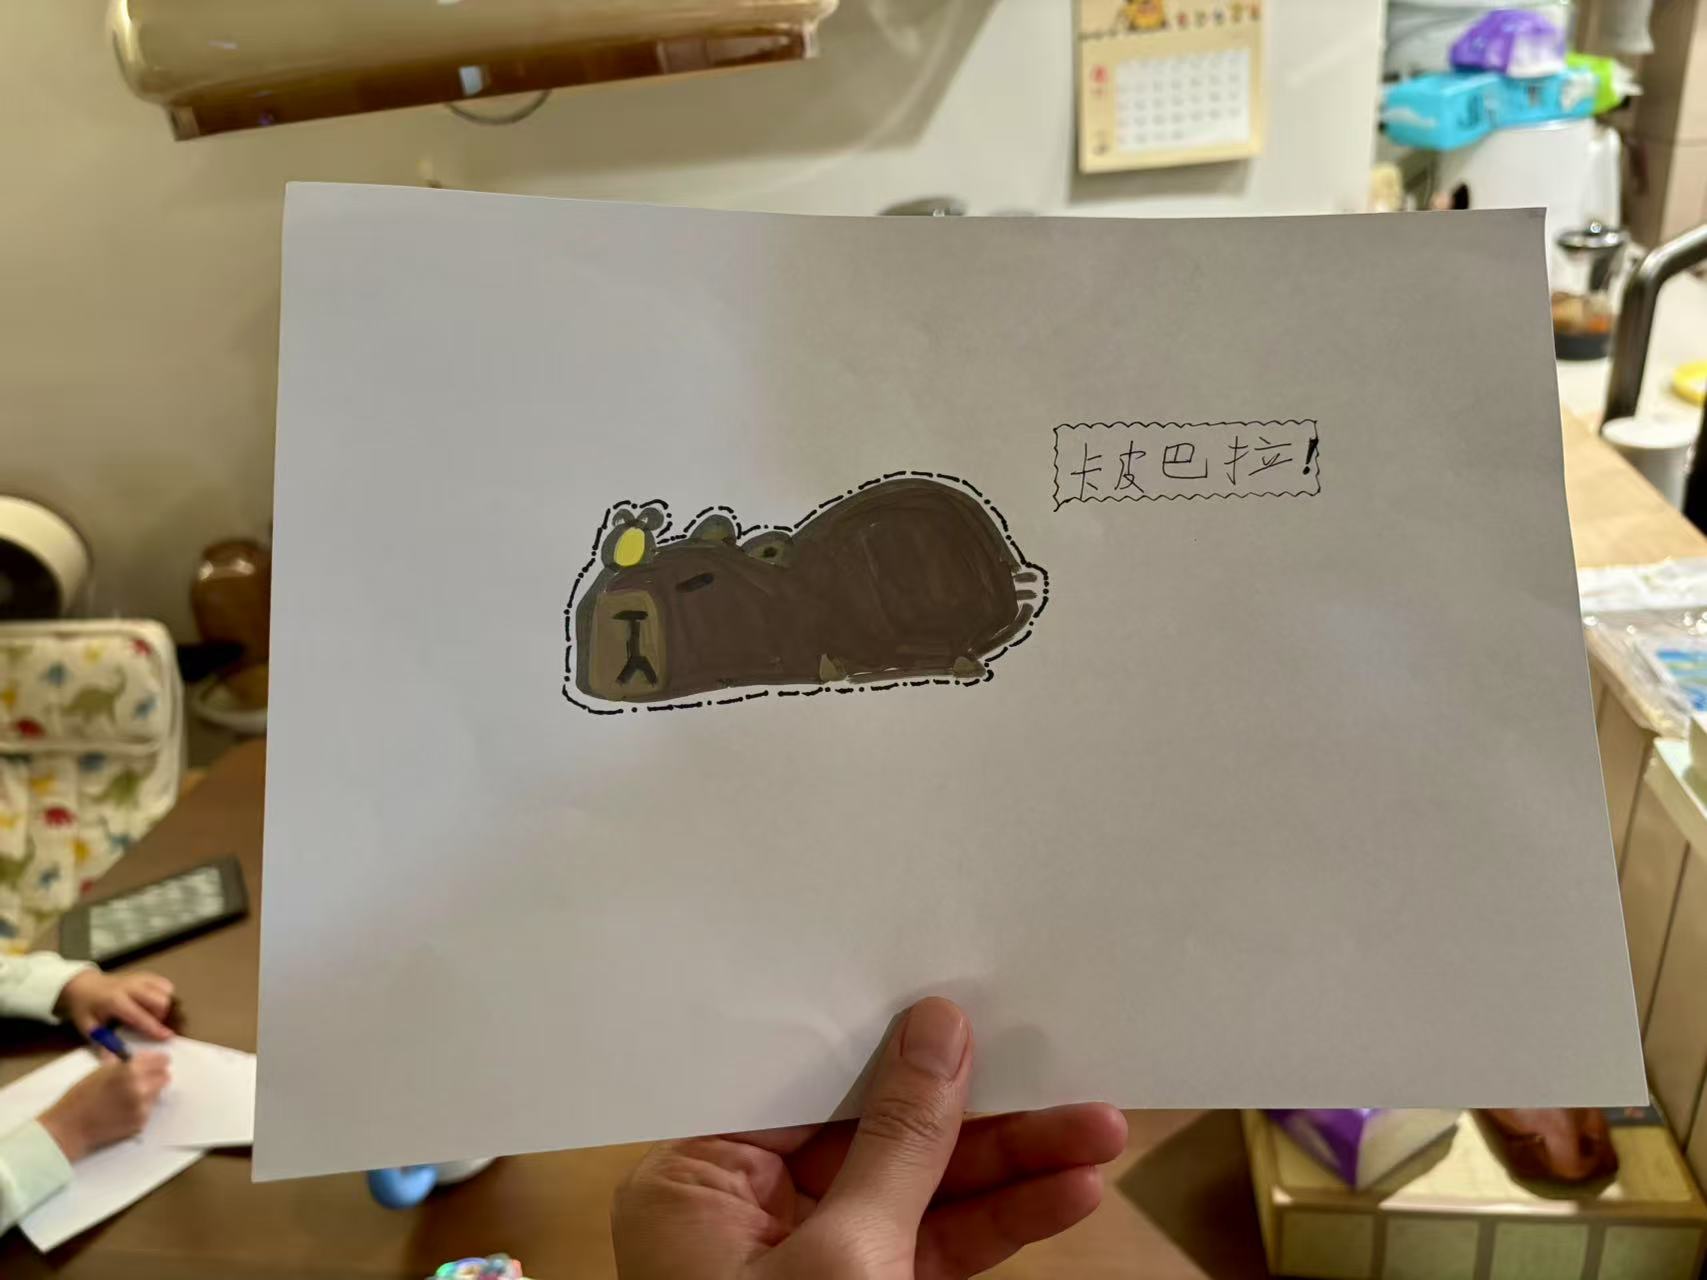 卡皮巴拉!